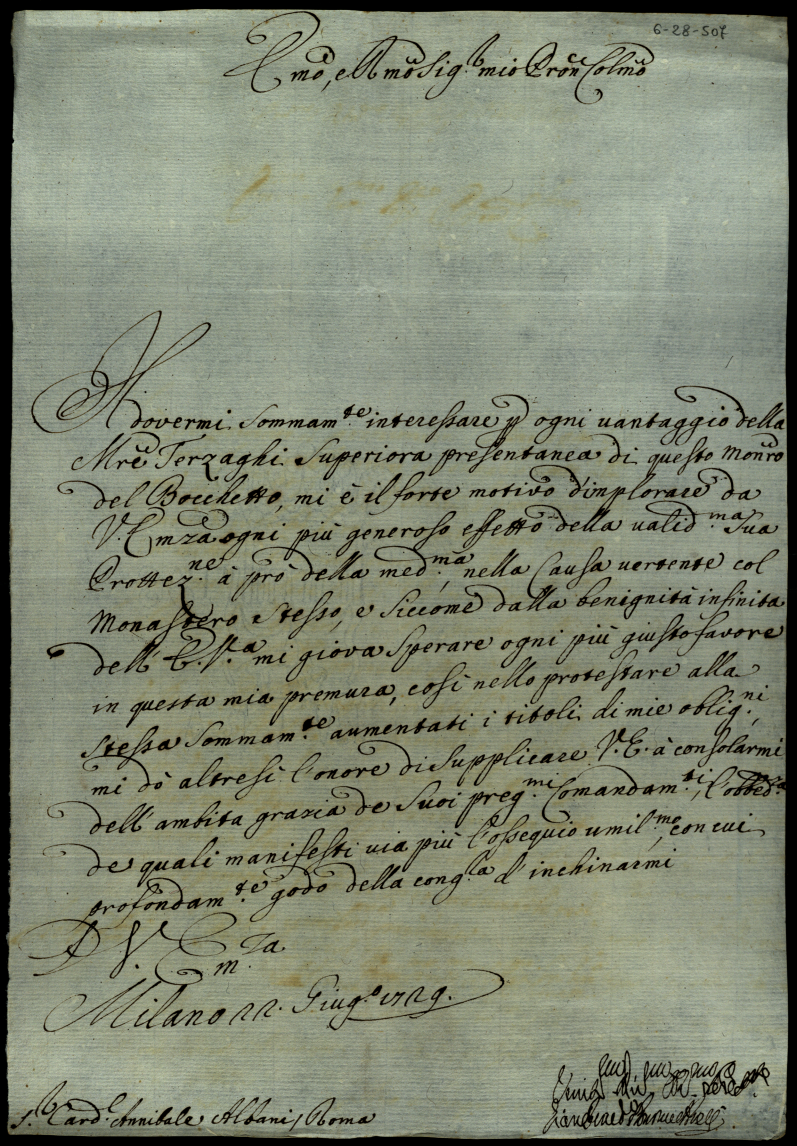 6-28-507
Emo, e Rmo Sig.r mio Pron Colmo
Il dovermi sommam.te interessare p ogni vantaggio della
Mre Terzaghi Superiora presentanea di questo Monro
del Bocchetto, mi è il forte motivo d'implorare da
V. Emza ogni più generoso effetto della valid.ma Sua
Prottez.ne à prò della med.ma, nella Causa vertente col
Monastero stesso, e siccome dalla benignità infinita
dell' E. V.a mi giova sperare ogni più giusto favore
in questa mia premura, così nello protestare alla
stessa sommam.te aumentati i titoli di mie oblig.ni,
mi dò altresì l'onore di supplicare V. E. à consolarmi
dell' ambita grazia de Suoi preg.mi Comandam.ti, l'obbed.za
de quali manifesti via più l'ossequio umil.mo, con cui
profondam.te godo della cong.la d' inchinarmi
D V. Em.za
Milano 22. Giug.o 1729.
S.r Card.l Annibale Albani, Roma